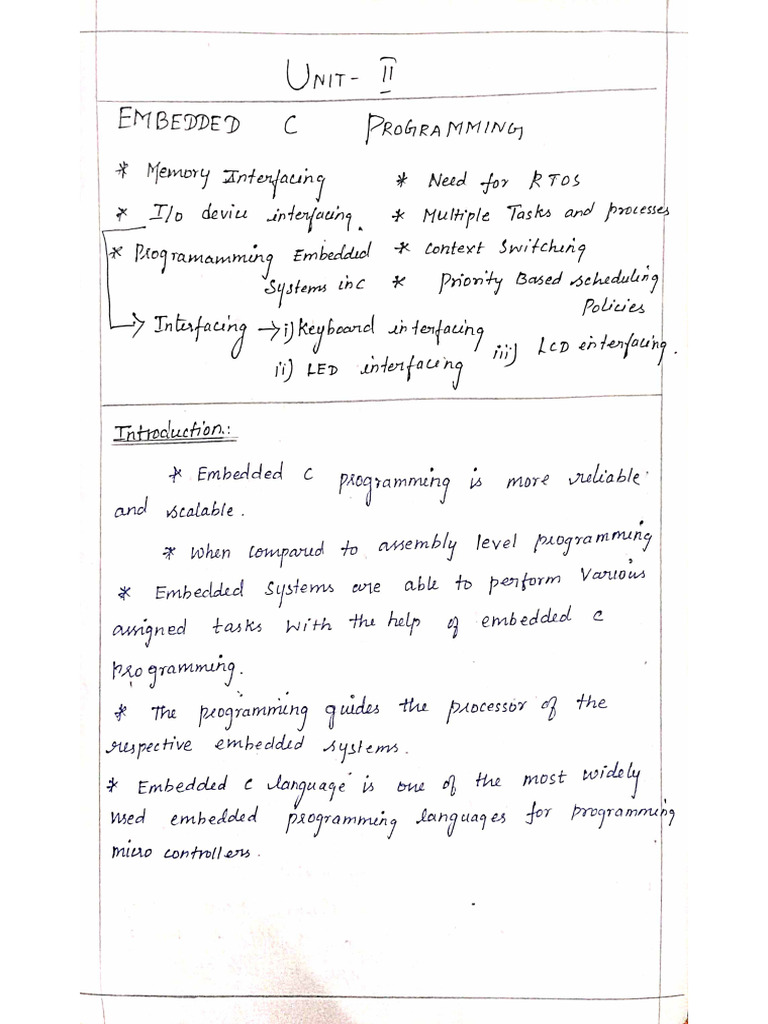 UNIT- II
EMBEDDED C PROGRAMMING
* Memory Interfacing
* I/o device interfacing.
* Programamming Embedded
Systems in C
* Need for RTOS
* Multiple Tasks and processes
* Context Switching
* Priority Based scheduling
Policies
→ Interfacing → i) Keyboard interfacing
ii) LED interfacing
iii) LCD enterfacing.
Introduction:
* Embedded C programming is more reliable
and scalable.
* When compared to assembly level programming
* Embedded Systems are able to perform various
assigned tasks with the help of embedded c
programming.
* The programming guides the processor of the
respective embedded systems.
* Embedded C language is one of the most widely
used embedded programming languages for programming
micro controllers.